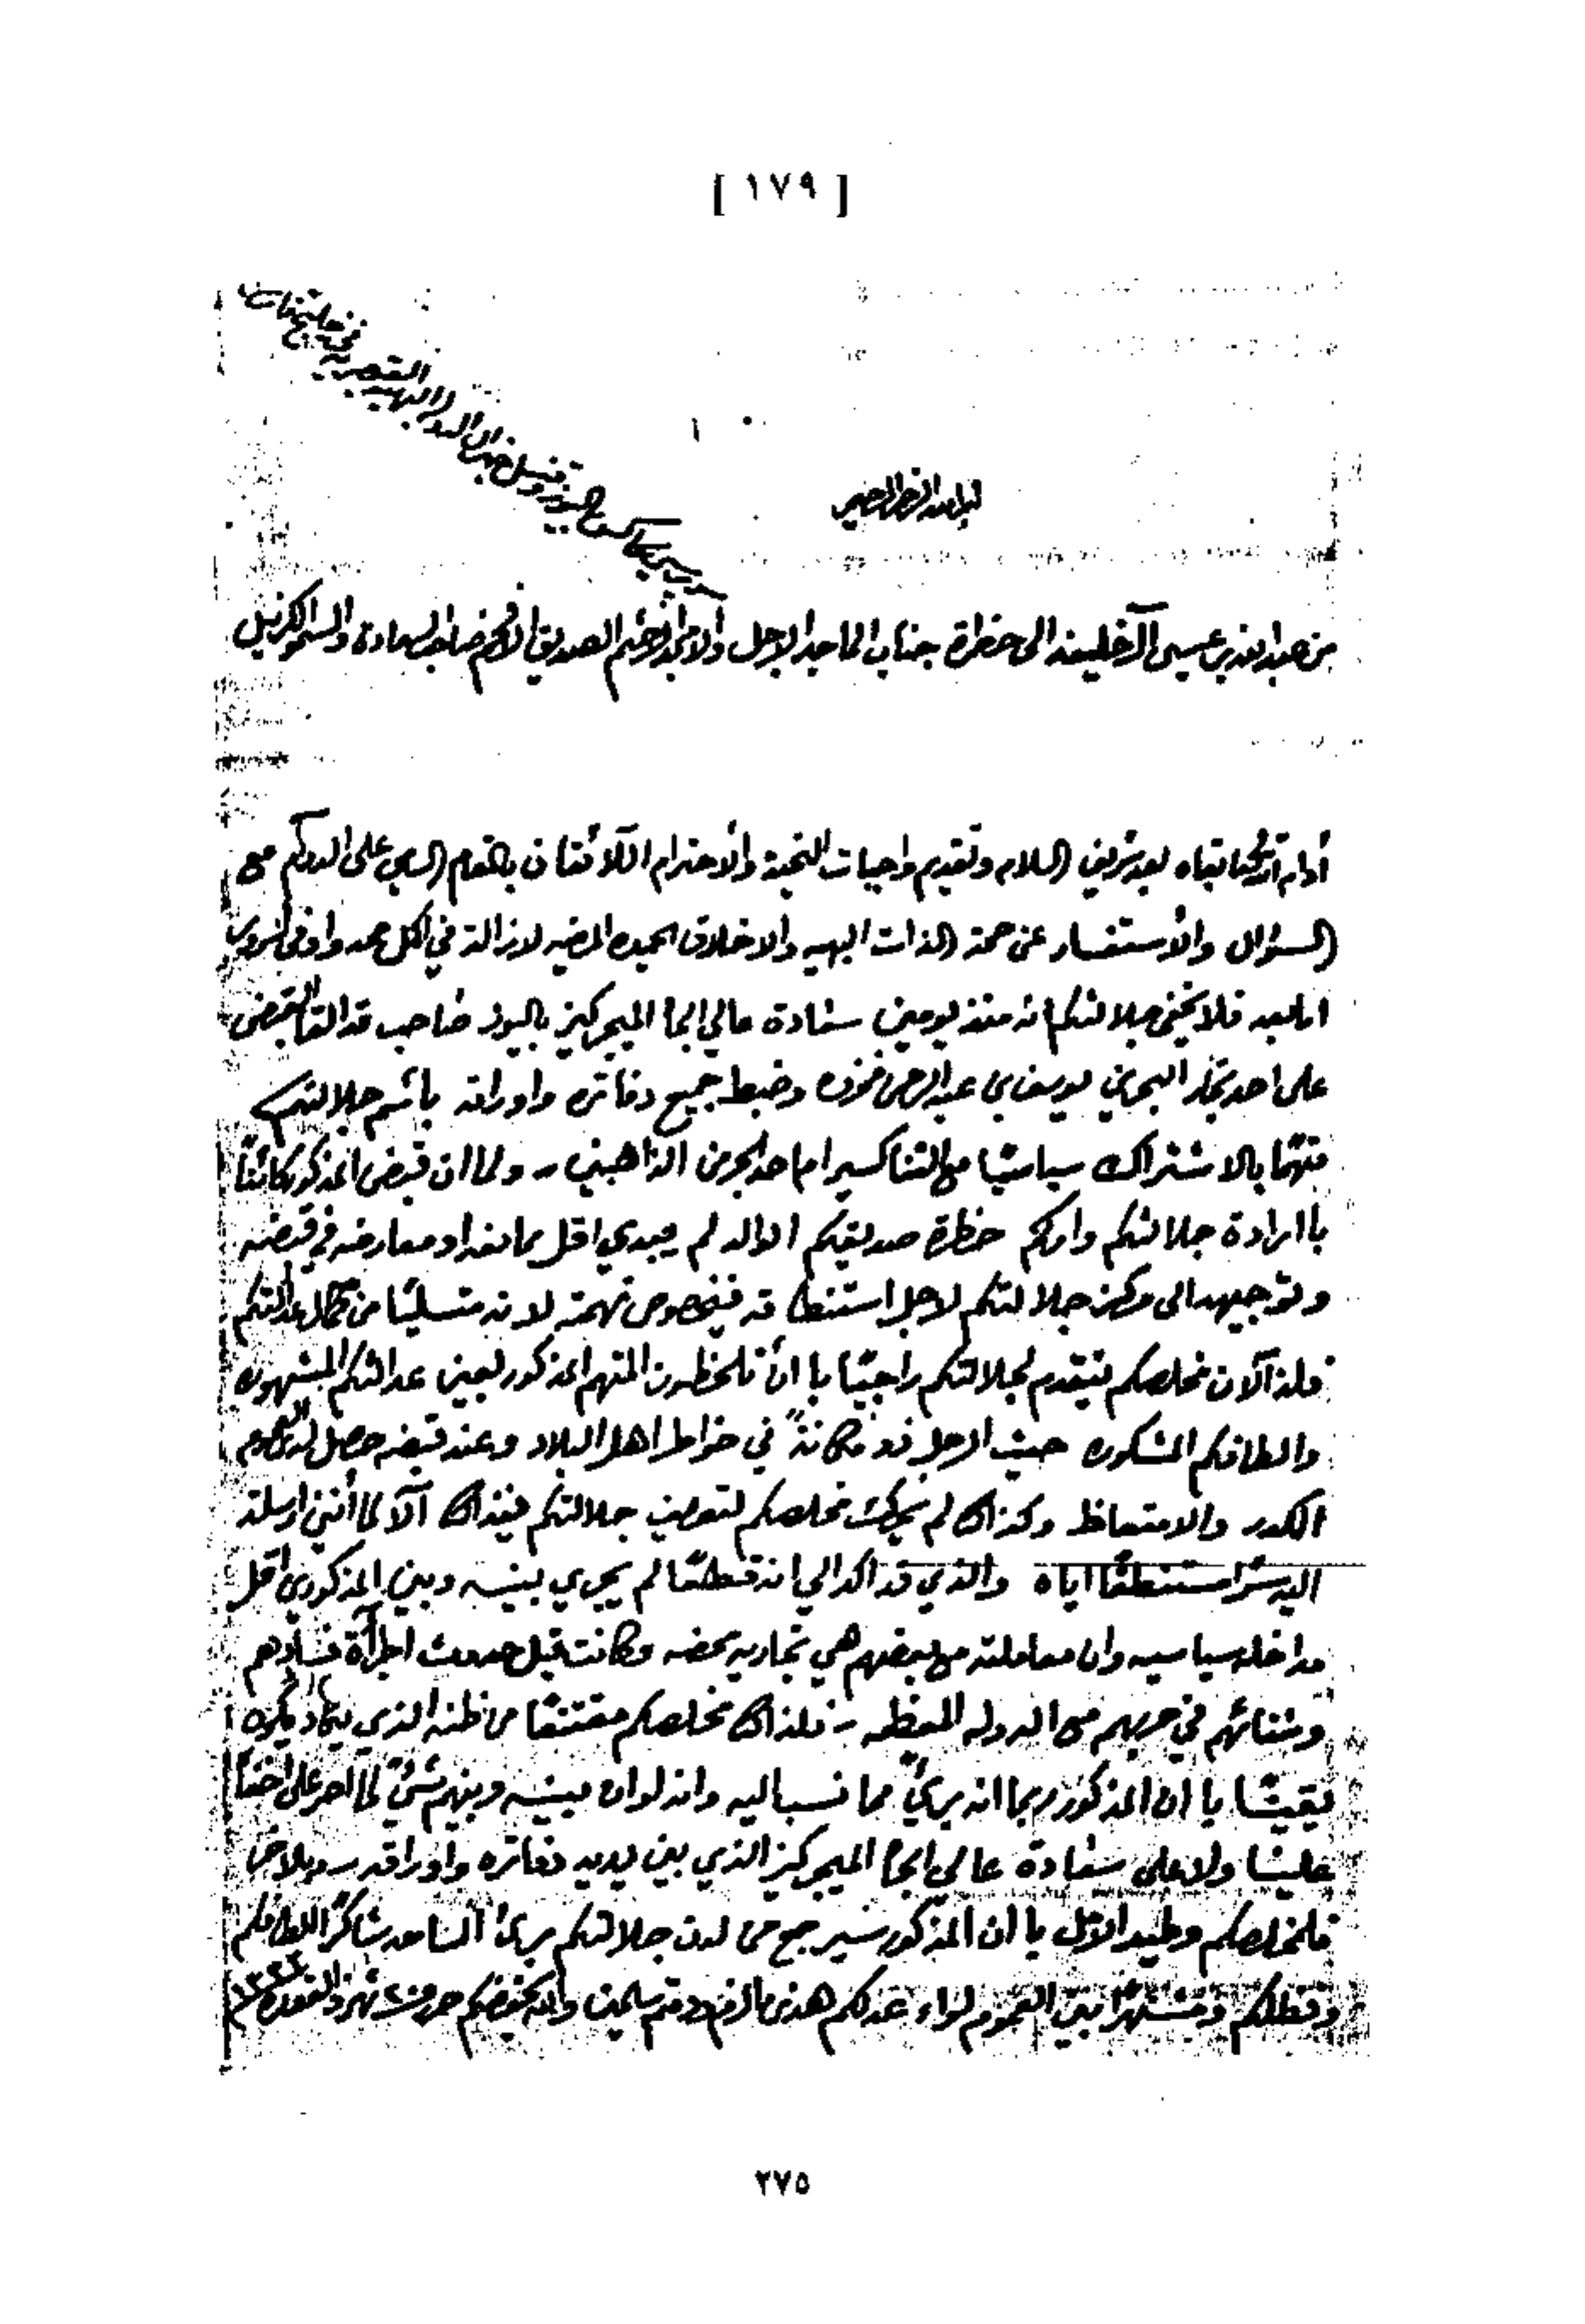 [ ١٧٩ ]
من عبد الله بن عيسى آل خليفه الى حضرة جناب الماجد الاجل والامجد الافخم الصديق الاكرم صاحب السعادة والسمو الكرنيل
سر برسي كوكس قونسل جنرال الدولة البهيه القيصريه في خليج فارس
أدام الله بقاه بعد شريف السلام وتقديم واجبات التحية والأحترام اللائقان بالمقام السامي على الدوام مع
السؤال والأستفسار عن صحة الذات البهيه والاخلاق الحميده المرضيه لازالة في اكمل صحه واوفى سرور
اما بعد فلا يخفى جلالتكم انه منذ يومين سعادة عالي الجاه الميجر كيز باليوز صاحب قد القا القبض
على احد تجار البحرين يوسف بن عبد الرحمن فخروه وضبط جميع دفاتره واوراقه بأسم جلالتكم
متهما بالاشتراك سياسيا مع التنا كسير احد الجرمن الذاهبين ــ ولما ان قبض المذكور كائنا
باارادة جلالتكم وامركم حظرة صديقكم الوالد لم يبدي اقل ممانعه او معارضه في قبضه
وتوجيهه الى مركز جلالتكم لاجل استنطاقه فيخصوص تهمته لانه متسليا من كمال عدالتكم
فلذا الآن مخلصكم يتقدم لجلالتكم راجيا باأن تلحظون المتهم المذكور بعين عدالتكم المشهوره
والطافكم المشكوره حيث الرجل ذو مكانةً في خواطر اهل البلاد وعند قبضه حصل لهم
الكدر والامتعاظ وكذالك لم يحرك مخلصكم لتعريف جلالتكم فيذالك الآ لما أنني ارسلت
اليه سرا مستنطقا اياه والذي قد اكد الي انه قطعا لم يجري بينه وبين المذكورين اقل
مداخله سياسيه وان معاملته مع بعضهم هي تجاريه محضه وكانت قبل حدوث اجرآة فسادهم
وشنائهم في حربهم مع الدوله المعظمه ــ فلذالك مخلصكم مقتنعا من ظنه الذي يكاد يكون
يقينا باان المذكور ربما انه بريئ مما نسب اليه وانه لو ان بينه وبينهم شيئ لما اصر على اخفا
علينا ولا على سعادة عالي الجاه الميجر كيز الذي بين يديه دفاتره واوراقه
فلمخلصكم وطيد الامل باان المذكور سيرجع من لدن جلالتكم بريئ الساحه شاكرا الطافكم
وفضلكم ومنشرا بين العموم لواء عدلكم هذا مالزم ودمتم سالمين والله يحفظكم حرر شهر ذو القعده
٢٧٥